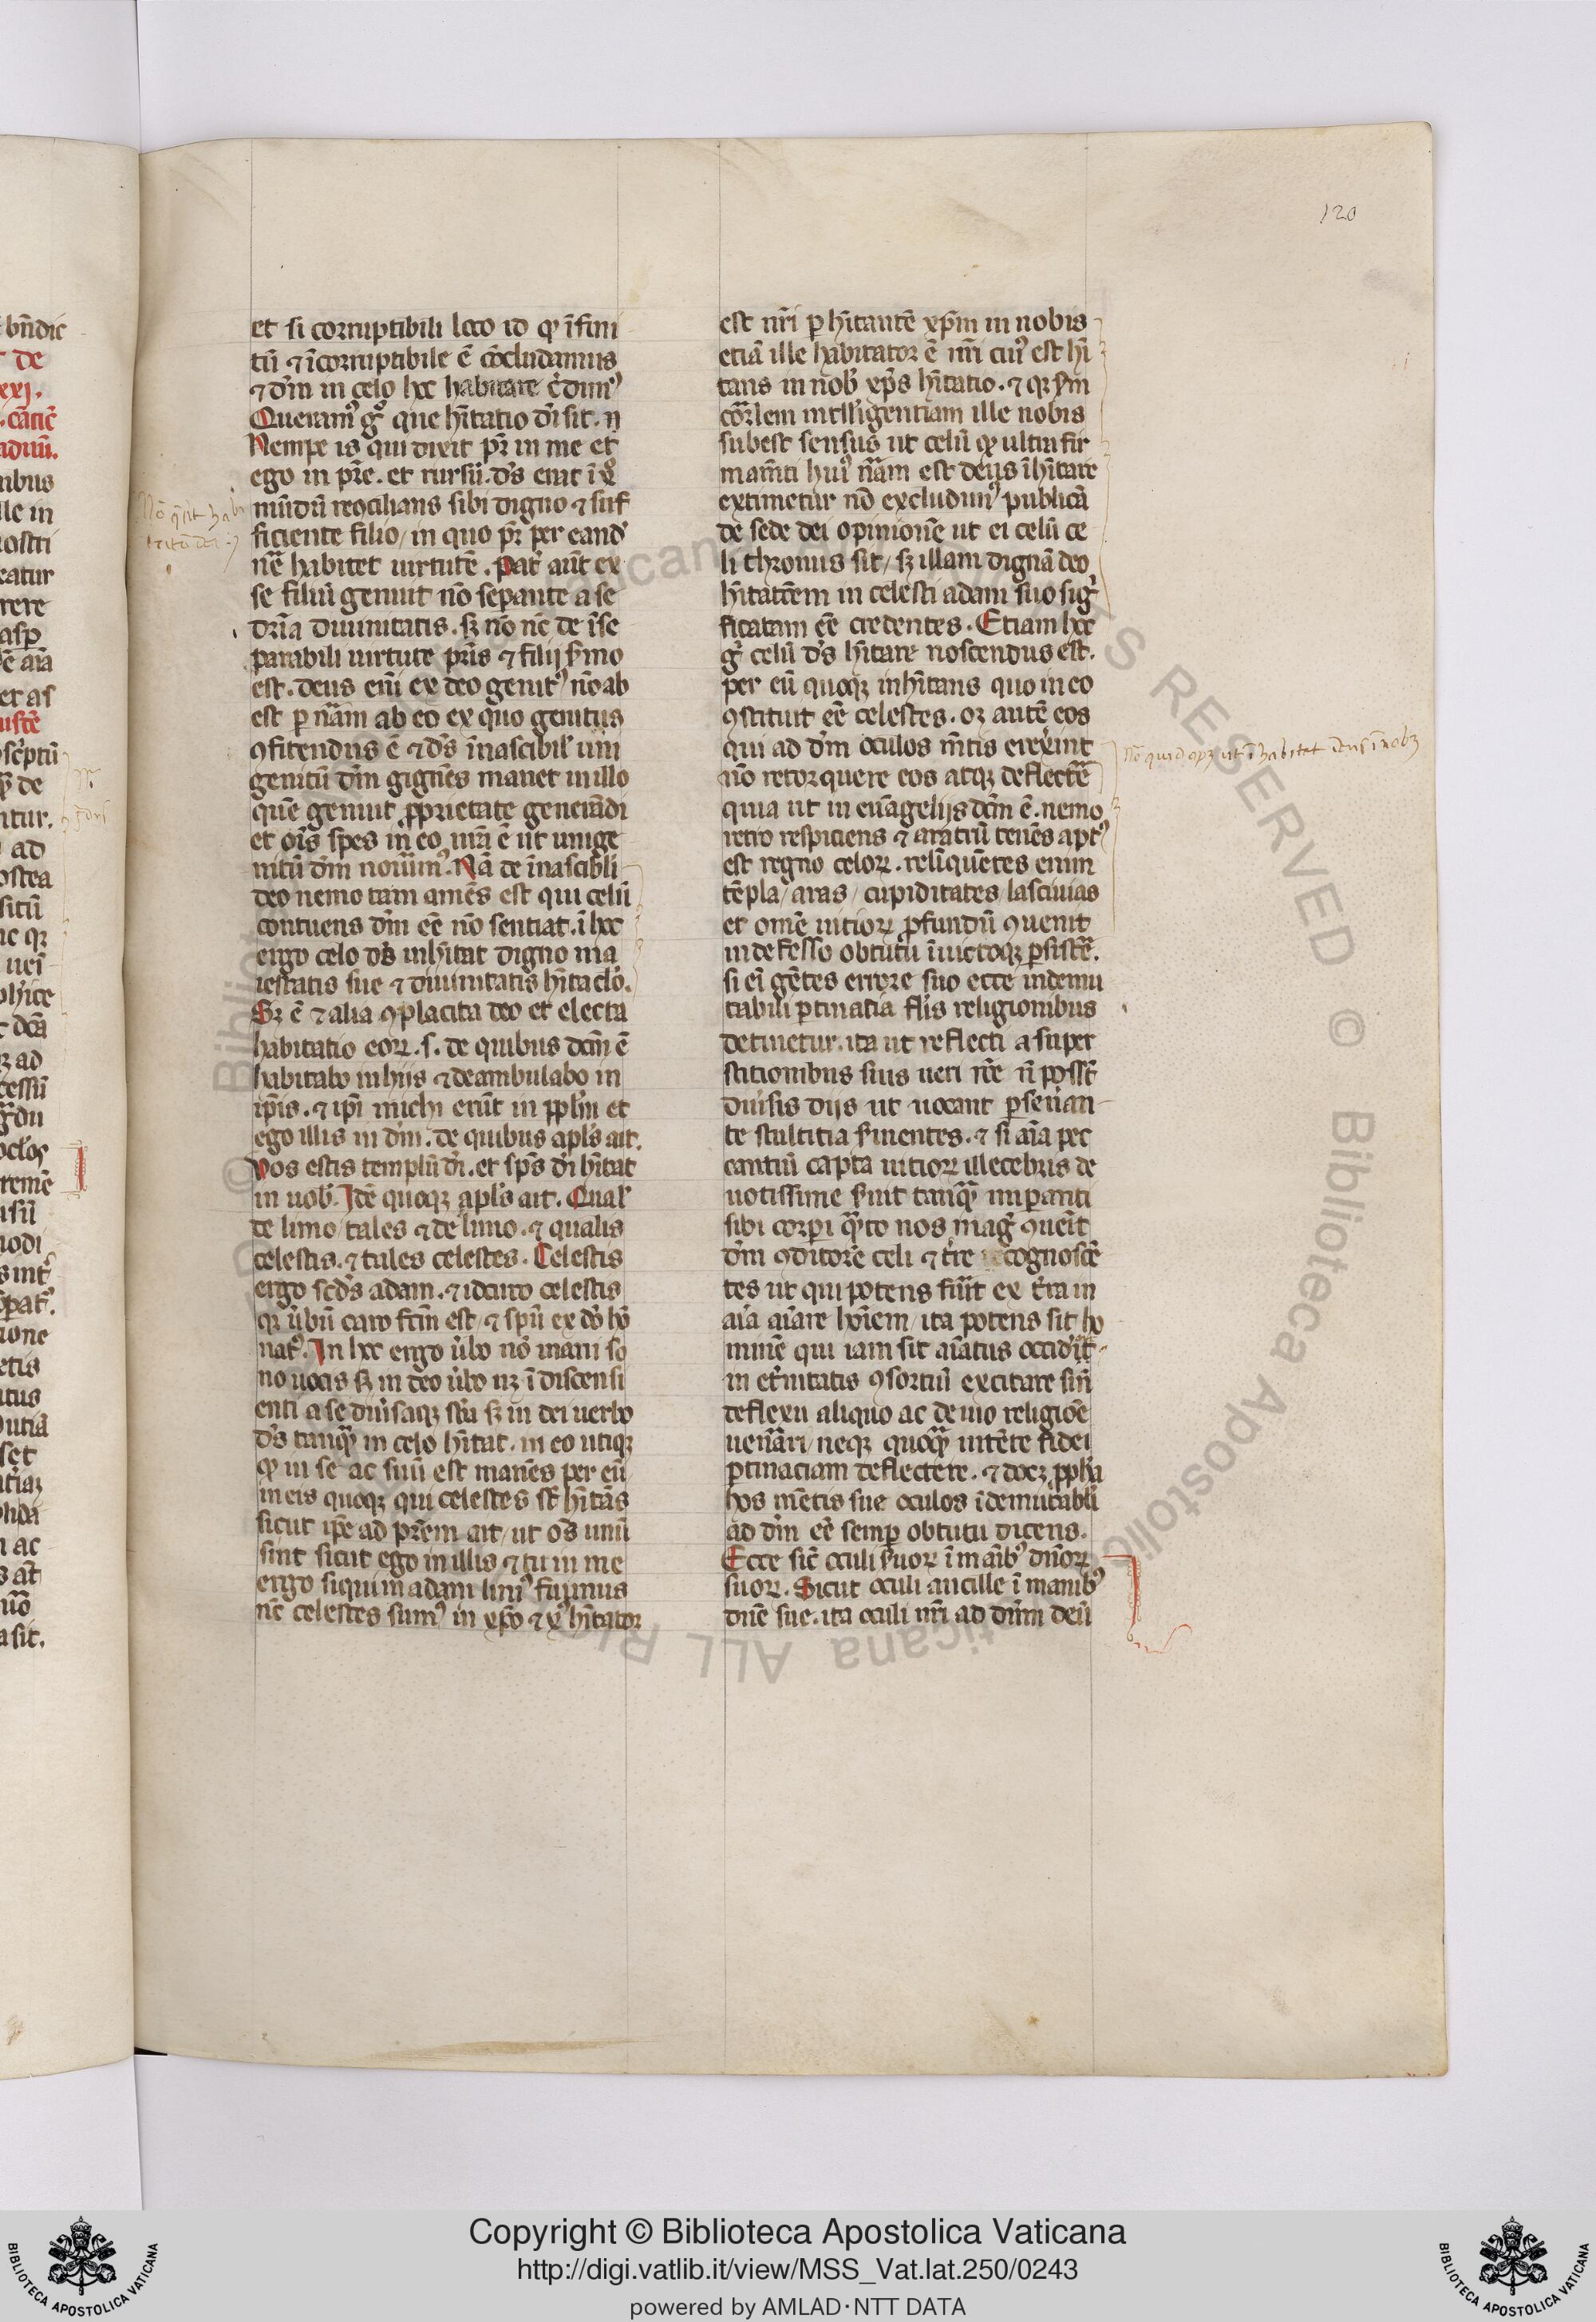 120
et si corruptibili loco id qđ ĩfini
tũ ⁊ ĩcorruptibile ẽ cõcludamus
⁊ dm̃ in celo hoc habitare c̃dimꝰ
Queramꝰ gͦ que hĩtatio dĩ sit. ŋ
Nempe is qui dixit pr̃ in me et
ego in pr̃e. et rursũ. ds̃ erat ĩ xp̃o
mũdũ recõcilians sibi digno ⁊ suf
ficiente filio/ in quo pr̃ per eand̕
nẽ habitet uirtutẽ. Pat̕ aũt ex
se filiũ genuit nõ seꝑante a se
dr̃ia diuinitatis. sꝫ nõ nẽ de ĩse
parabili uirtute pr̃is ⁊ filij s̕mo
est. deus eni ex deo genitꝰ nõ ab
est ꝑ nãm ab eo ex quo genitus
ꝯfitendus ẽ ⁊ ds̃ ĩnascibil̕ uni
genitũ dm̃ gignẽs manet in illo
quẽ genuit ꝓprietate generãdi
et oĩs spes in eo nr̃a ẽ ut unige
nitũ dm̃ nouim̃ꝰ. Nã de ĩnascibili
deo nemo tam amẽs est qui celũ
contuens dm̃ eẽ nõ sentiat. ĩ hoc
ergo celo ds̃ inhĩtat digno ma
iestatis sue ⁊ diuinitatis hĩtaclo̕.
Sꝫ ẽ ⁊ alia ꝯplacita deo et electa
habitatio eoꝝ .s. de quibus dcm̃ ẽ
habitabo in hijs ⁊ deambulabo in
ip̃is. ⁊ ip̃i michi erũt in ppl̃m et
ego illis in dm̃. de quibus apl̃s ait.
Vos estis templũ dĩ. et sp̃s dĩ hĩtat
in uob̕. Idẽ quoqꝫ apl̃s ait. Qual̕
de limo/ tales ⁊ de limo. ⁊ qualis
celestis. ⁊ tales celestes. Celestis
ergo scds̃ adam. ⁊ idcirco celestis
qꝛ u̕bũ caro fcm̃ est/ ⁊ spũ ex dõ hõ
natꝰ. In hoc ergo u̕bo nõ inani so
no uocis sꝫ in deo u̕bo nꝫ ĩ discensi
enti a se diu̕saqꝫ sb̃a sꝫ in dei uerbo
ds̃ tanqꝫ̃ in celo hĩtat. in eo utiqꝫ
qđ in se ac suũ est manẽs per eũ
in eis quoqꝫ qui celestes st̃ hĩtãs
sicut ip̃e ad pr̃em ait/ ut oẽs unũ
sint sicut ego in illis ⁊ tu in me
ergo siqui in adam limꝰ fuimus
nc̃ celestes sumꝰ in xp̃o ⁊ xp̃s hĩtator
est nr̃i ꝑ hĩtantẽ xp̃m in nobis
etiã ille habitator ẽ nr̃i cuiꝰ est hĩ
tans in nob̕ xp̃s hĩtatio. ⁊ qꝛ s̕m
cõr̃lem intll̕igentiam ille nobis
subest sensus ut celũ qđ ultra fir
mamt̃i huiꝰ nãm est deus ĩhĩtare
extimetur nõ excludimꝰ publicã
de sede dei opinionẽ ut ei celũ ce
li thronus sit/ sꝫ illam dignã deo
hĩtatõem in celesti adam suo sig̕
ficatam eẽ credentes. Etiam hoc
g̕ celũ ds̃ hĩtare noscendus est.
per eũ quoqꝫ inhĩtans quo in eo
ꝯstituit eẽ celestes. oꝫ autẽ eos
qui ad dm̃ oculos mẽtis erex̕int
nõ retorquere eos atqꝫ deflecte̕
quia ut in euãgelijs dcm̃ ẽ. nemo
retro respiciens ⁊ aratrũ tenẽs aptꝰ
est regno celoꝝ. relĩquẽtes enim
tẽpla/ aras/ cupiditates/ lasciuias
et omẽ uitioꝝ ꝓfundũ ꝯuenit
indefesso obtutu ĩuictoqꝫ ꝑsiste̕.
si eĩ gẽtes errore suo ecce indemu
tabili ꝑtinatia fl̕is religionibus
detinetur. ita ut reflecti a super
stitionibus suis ueri rõe nõ possẽt
diu̕sis dijs ut uocant ꝑseueran
te stultitia s̕uientes. ⁊ si aĩa pec
cantiũ capta uitioꝝ illecebris de
uotissime s̕uit tanqꝫ̃ imꝑanti
sibi corpi q̃to nos mag̕ ꝯueĩt
dm̃ ꝯditorẽ celi ⁊ t̕re cognoscẽ
tes ut qui potens fu̕it ex t̕ra in
aĩa aĩare hoĩem/ ita potens sit ho
minẽ qui iam sit aĩatus occid̕it
in et̕nitatis ꝯsortiũ excitare sin̕
deflexu aliquo ac denuo religiõe
uen̕ari/ neqꝫ quoqꝫ̃ intẽte fidei
ꝑtinaciam deflectere. ⁊ docꝫ ꝓph̃a
hos mẽtis sue oculos ĩdemutabl̕i
ad dm̃ eẽ semꝑ obtutu dicens.
Ecce sic̃ oculi s̕uoꝝ ĩ manibꝰ dn̕oꝝ
suoꝝ. Sicut oculi ancille ĩ manibꝰ
dnẽ sue. ita oculi nr̃i ad dñm deũ
Copyright © Biblioteca Apostolica Vaticana
http://digi.vatlib.it/view/MSS_Vat.lat.250/0243
powered by AMLAD·NTT DATA
BIBLIOTECA APOSTOLICA VATICANA
BIBLIOTECA APOSTOLICA VATICANA